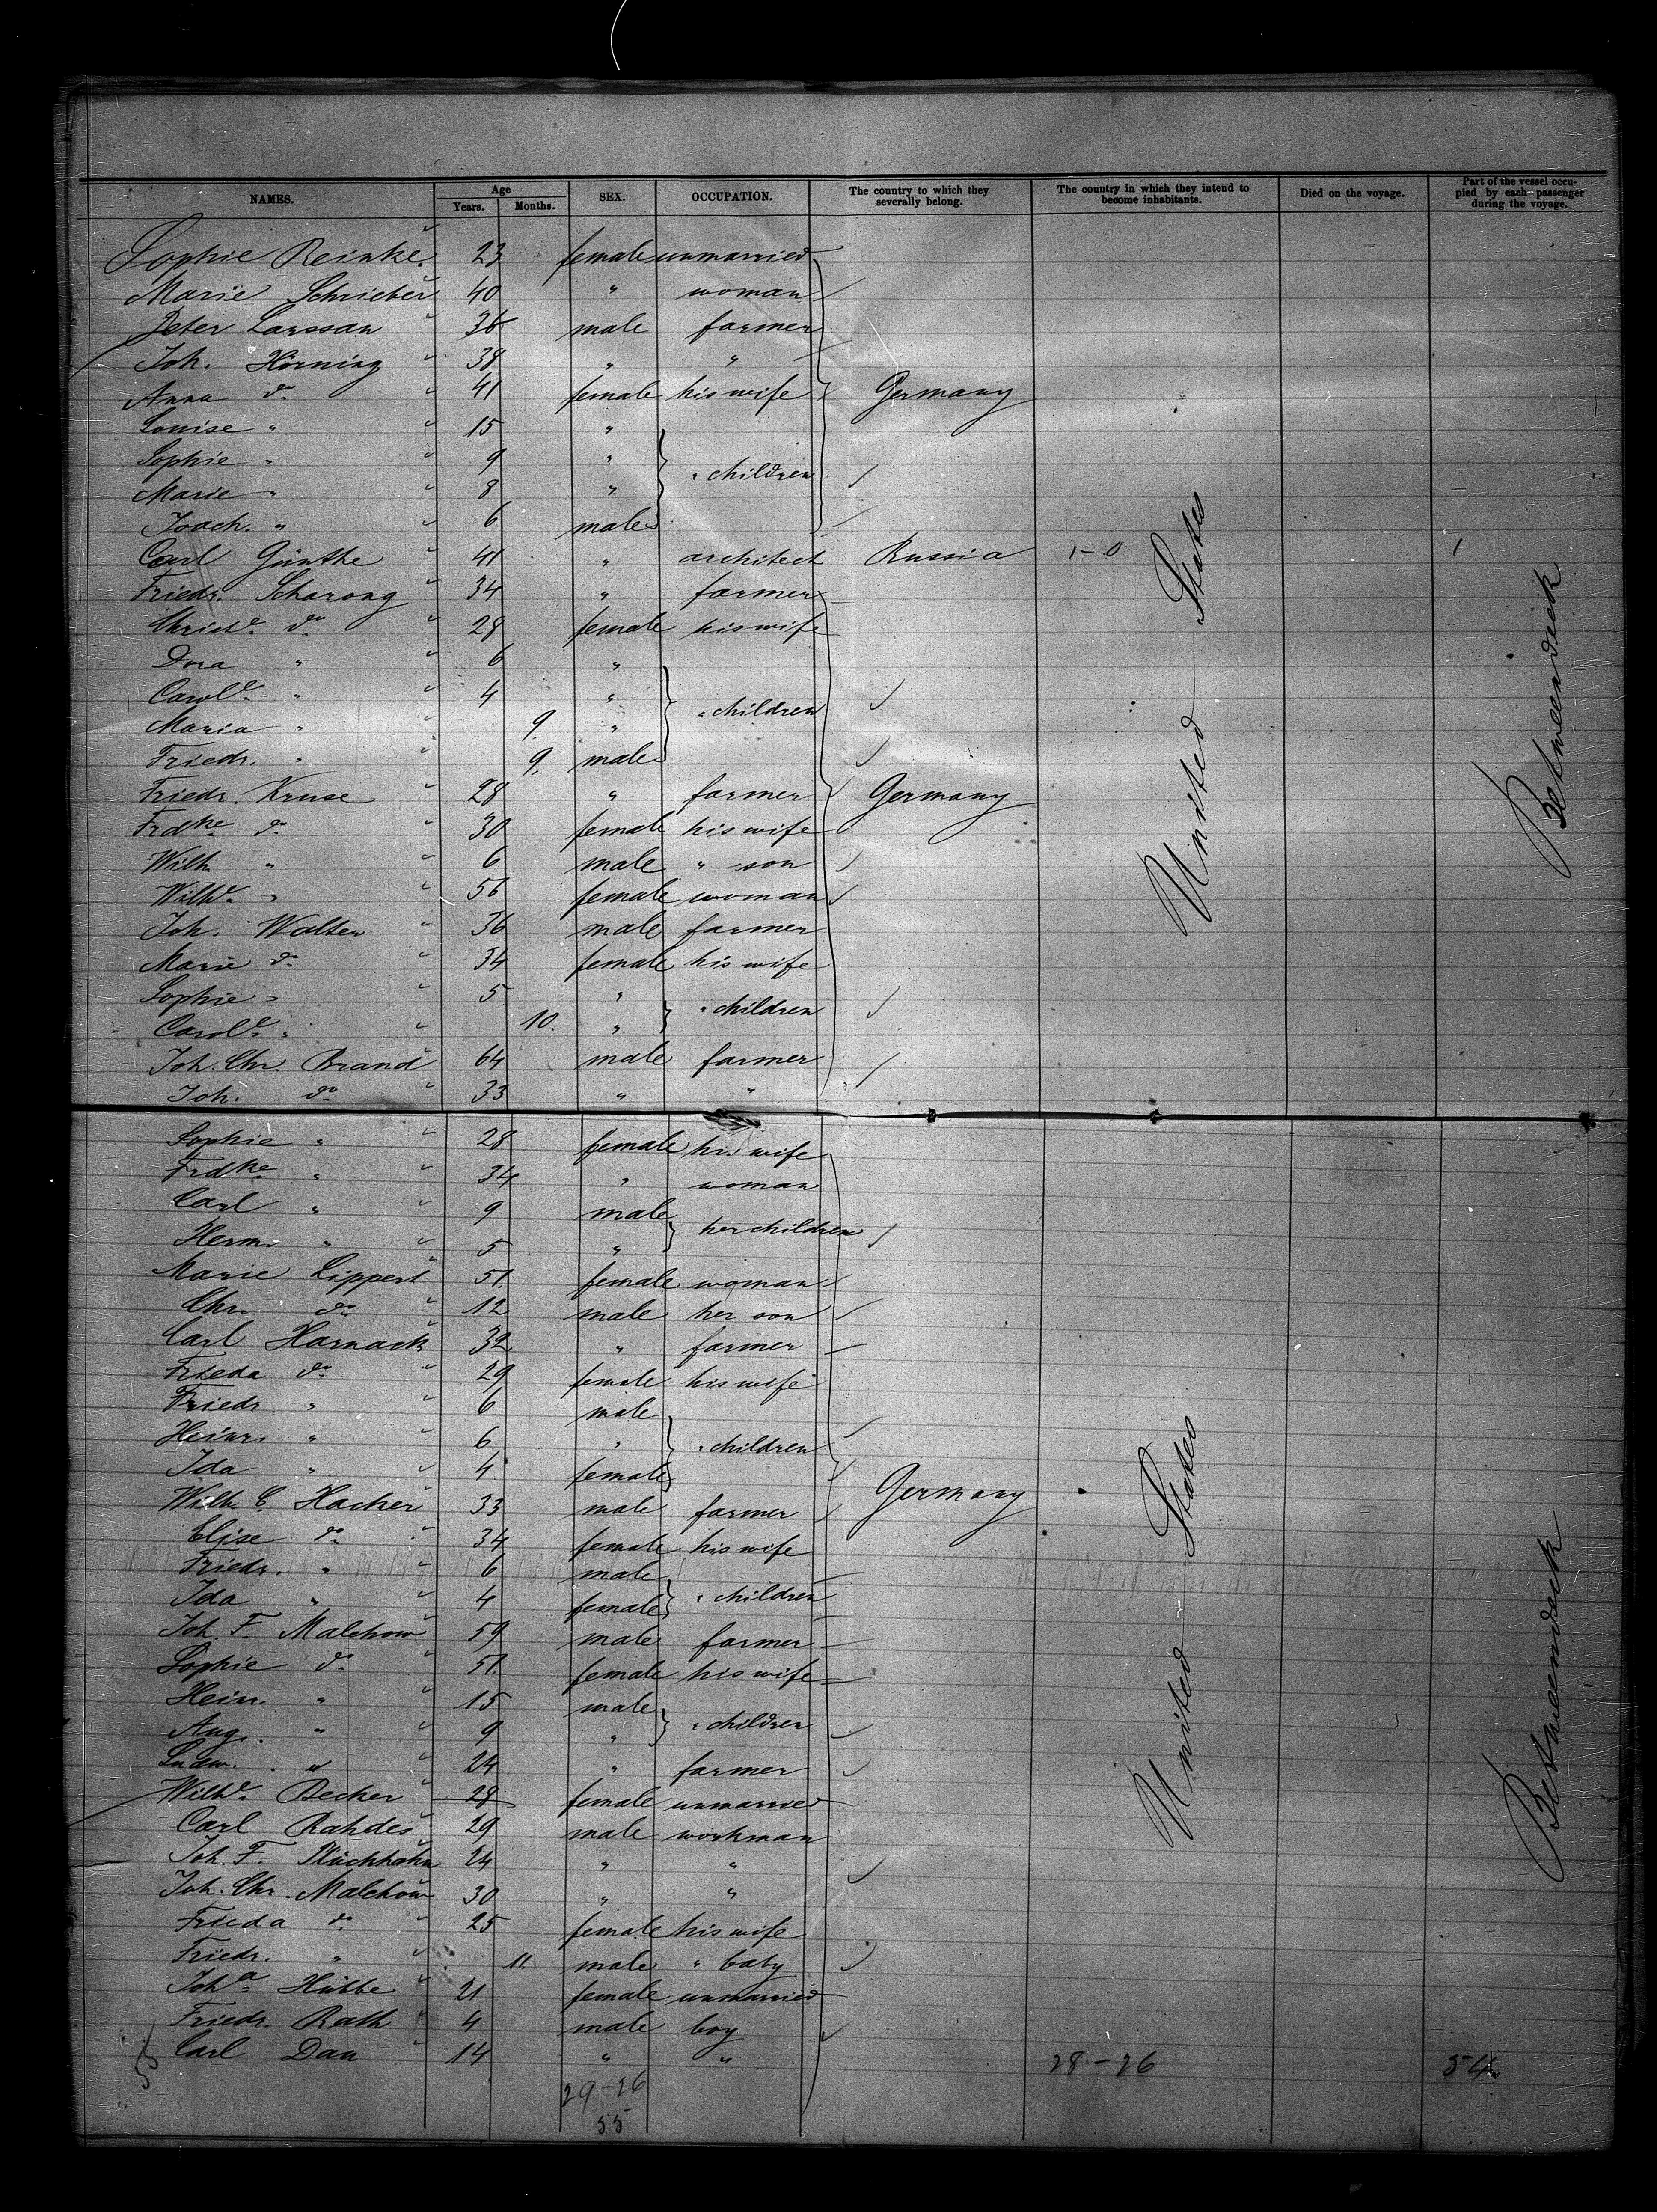 NAMES. Age Years. Months. SEX. OCCUPATION. The country to which they severally belong. The country in which they intend to become inhabitants. Died on the voyage. Part of the vessel occupied by each passenger during the voyage.
Sophie Reinke 23 female unmarried
Marie Schrieber 40 " woman
Peter Larssan 36 male farmer
Joh. Hörning 38 " "
Anna do 41 female his wife Germany
Louise " 15 "
Sophie " 9 " " children
Marie " 8 "
Joach. " 6 male
Carl Günthe 41 " architect Russia 1-0 1
Friedr. Scharong 34 " farmer
Christe. do 28 female his wife
Dora " 6 "
Carole. " 4 " " children
Maria " 9. "
Friedr. " 9. male
Friedr. Kruse 28 " farmer Germany
Frdke do 30 female his wife
Wilh " 6 male " son
Wilhe. " 56 female woman
Joh. Walter 36 male farmer
Marie do 34 female his wife
Sophie " 5 " " children
Carole. " 10. "
Joh. Chr. Brand 64 male farmer
Joh. do 33 " "
United States
Betweendeck
Sophie " 28 female his wife
Frdke " 34 " woman
Carl " 9 male her children
Herm. " 5 "
Marie Lippert 51 female woman
Chr. do 12 male her son
Carl Harnack 32 " farmer
Frieda do 29 female his wife
Friedr. " 6 male
Heinr. " 6 " " children
Ida " 4 female
Wilh C. Hacker 33 male farmer Germany
Elise do 34 female his wife
Friedr. " 6 male
Ida " 4 female " children
Joh. F. Malchow 59 male farmer
Sophie do 51 female his wife
Hein. " 15 male
Aug. " 9 " " children
Ludw. " 24 " farmer
Wilhe. Becker 28 female unmarried
Carl Rahdes 29 male workman
Joh. F. Plückhahn 24 " "
Joh. Chr. Malchow 30 " "
Frieda do 25 female his wife
Friedr. " 11. male " baby
Joha Hübbe 21 female unmarried
Friedr. Rath 4 male boy
Carl Dau 14 " "
28-26 54
29-26
55
55
United States
Betweendeck